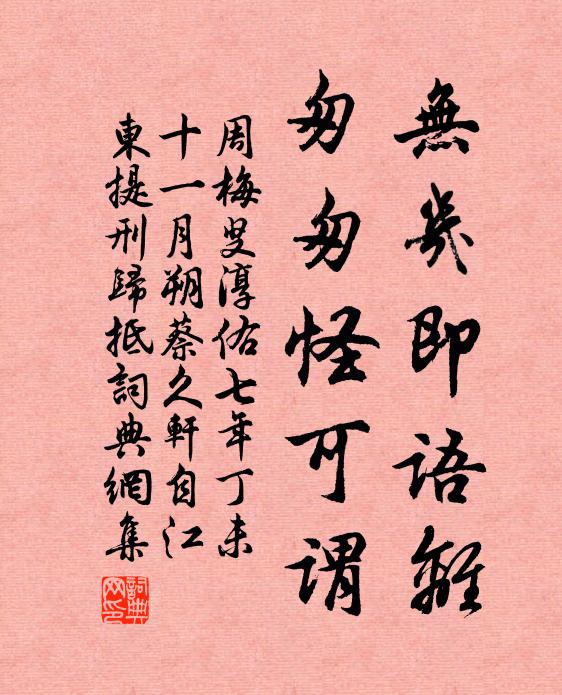 無幾即語離
匆匆怪可謂
周梅叟淳佑七年丁未
十一月朔蔡久軒自江
東提刑歸抵詞典網集
詞典
网印